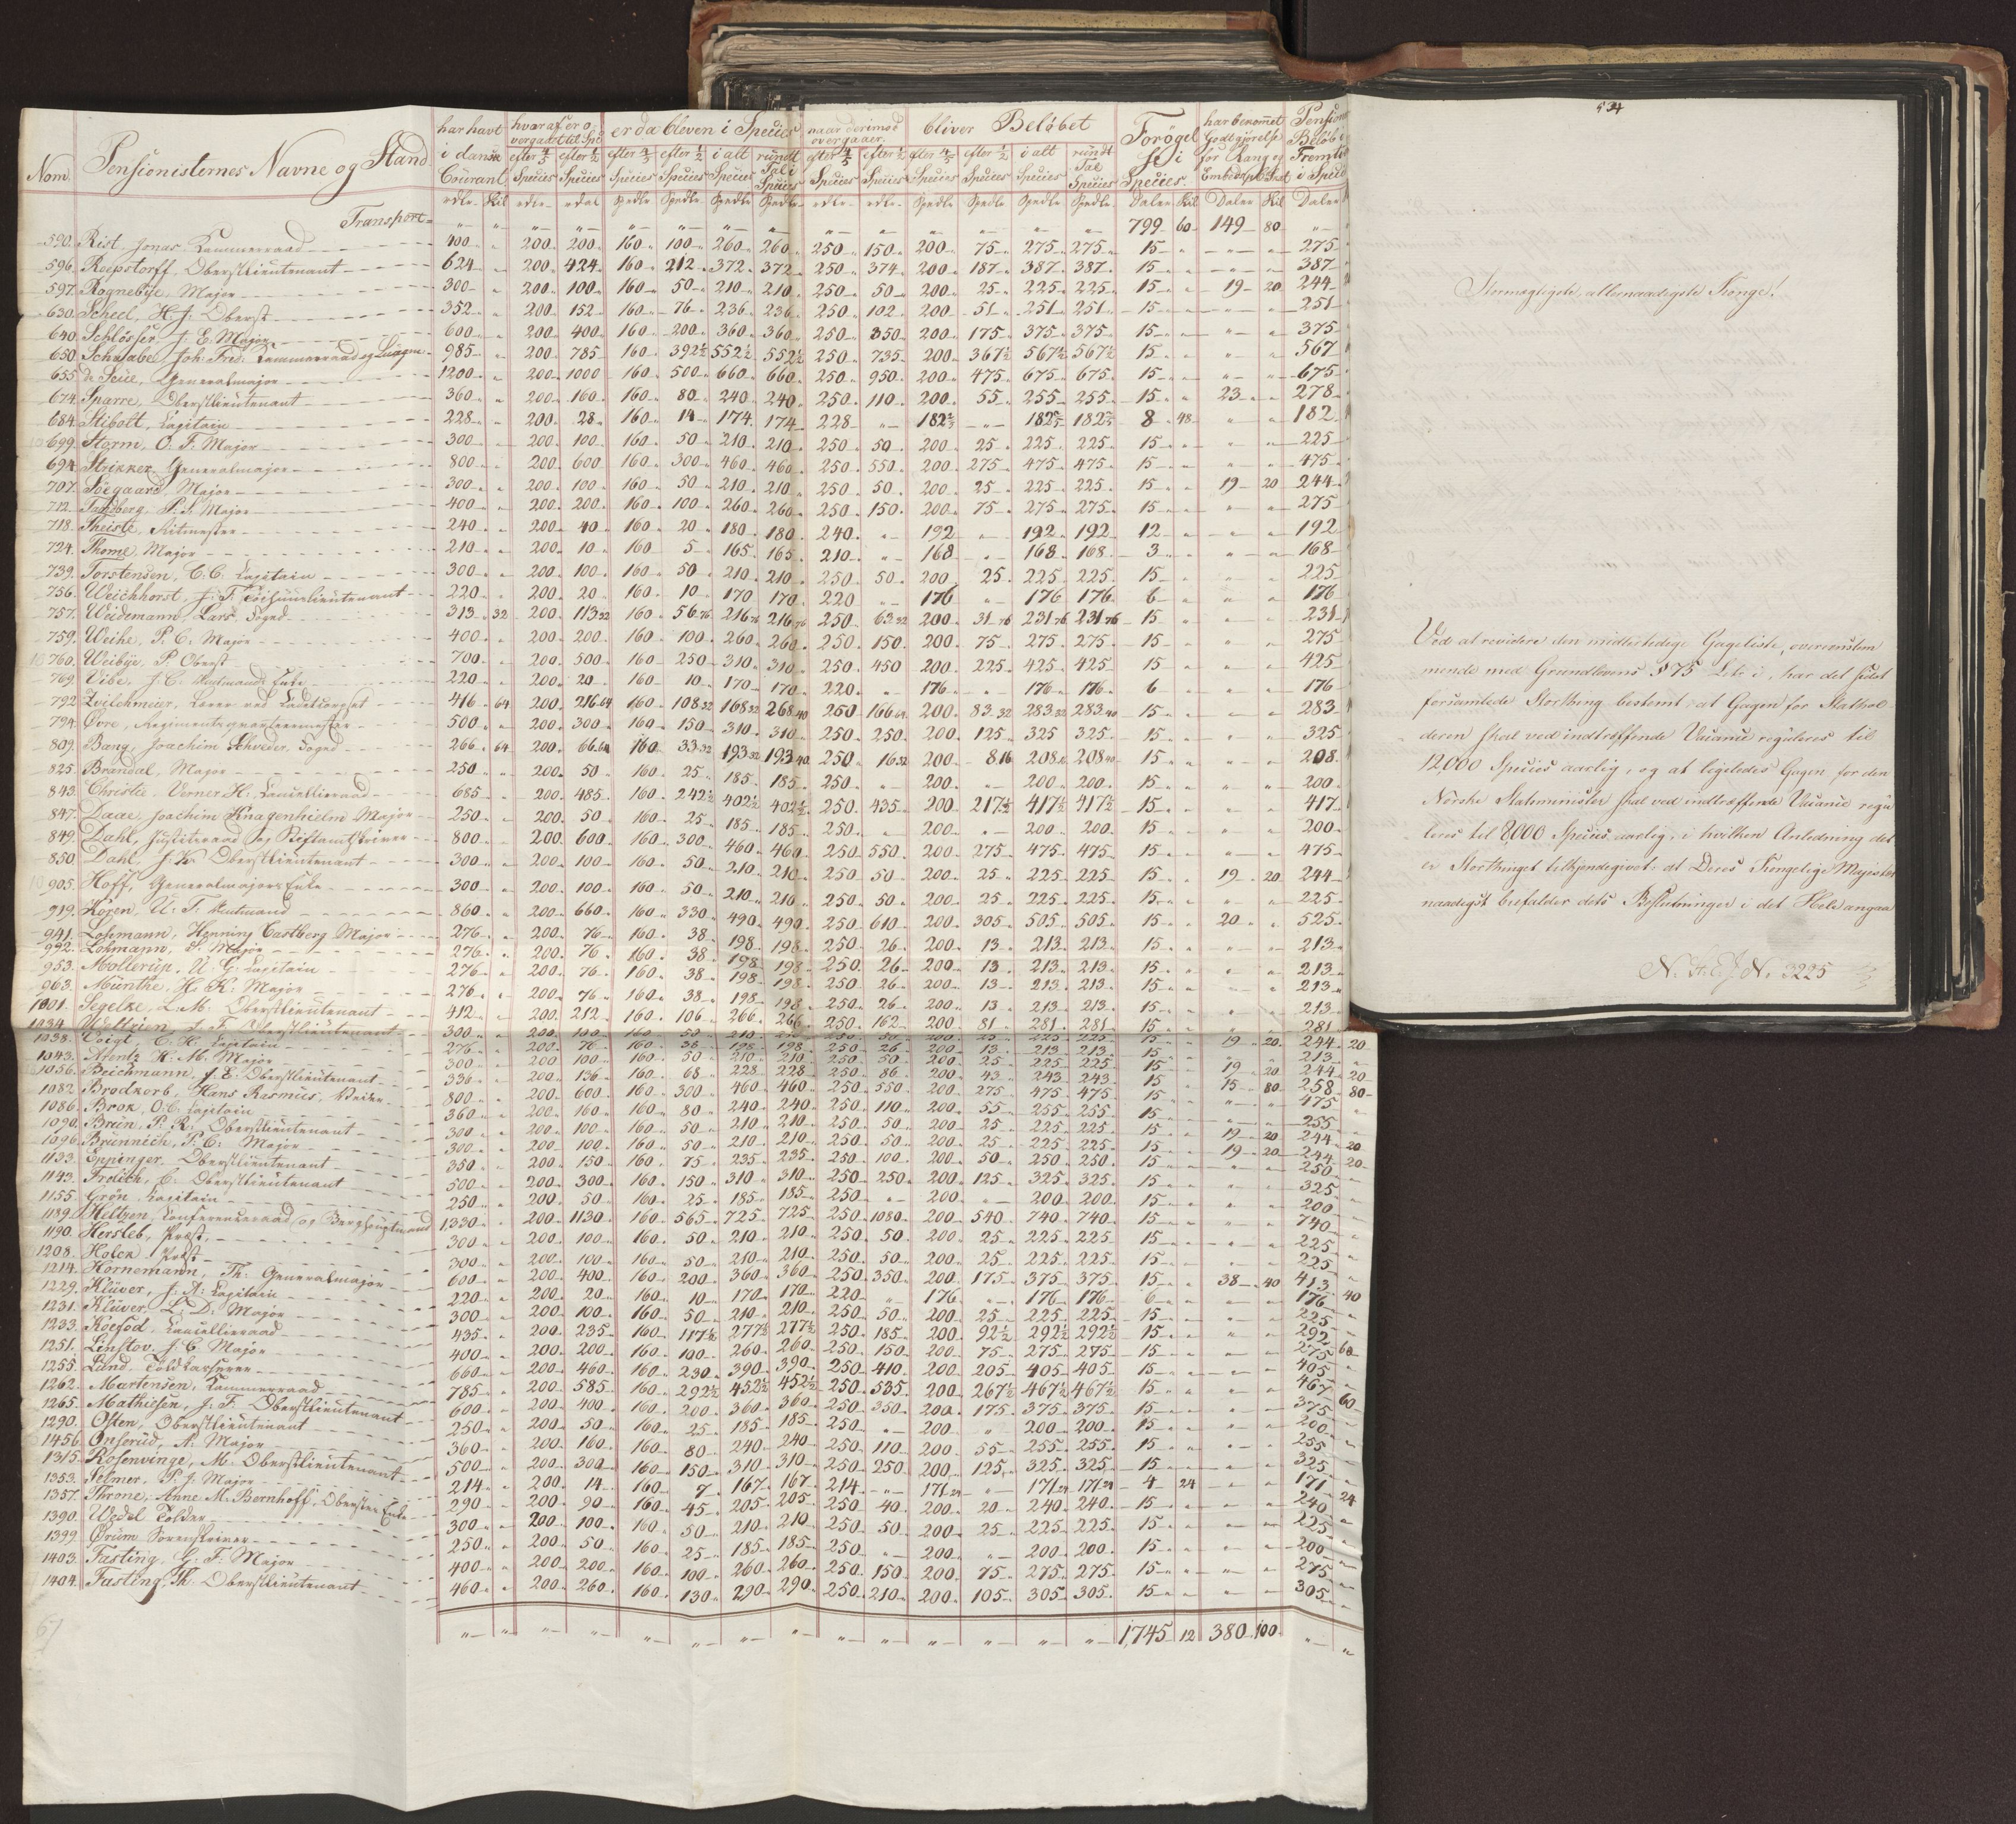 Nom. Pensionisternes Navne og Stand. har havt i dansk Courant. hvoraf er overgaaet til Spec. efter 4/5 Species efter 1/2 Species er da bleven i Species efter 4/5 Species efter 1/2 Species i alt Species rundt Tal i Species naar derimod overgaaer efter 4/5 Species efter 1/2 Species bliver Beløbet efter 4/5 Species efter 1/2 Species i alt Species rundt Tal Species Forøgelse i Species. har bekommet Godtgjørelse for Rang og Pension Beløb i Fremti i Speci
Transport 799 60 149 80
590. Rist, Jonas, Kammerraad 400 200 200 160 100 260 260 250 150 200 75 275 275 15 275
596. Roepstorff, Oberstlieutenant 624 200 424 160 212 372 372 250 374 200 187 387 387 15 387
597. Rognebye, Major 300 200 100 160 50 210 210 250 50 200 25 225 225 15 19 20 244
630. Scheel, H. J. Oberst 352 200 152 160 76 236 236 250 102 200 51 251 251 15 251
640. Schlösser, J. E. Major 600 200 400 160 200 360 360 250 350 200 175 375 375 15 375
650. Schwabe, Joh. Fred. Kammerraad og 985 200 785 160 392½ 552½ 552½ 250 735 200 367½ 567½ 567½ 15 567
655. de Seue, Generalmajor 1200 200 1000 160 500 660 660 250 950 200 475 675 675 15 675
674. Sparre, Oberstlieutenant 360 200 160 160 80 240 240 250 110 200 55 255 255 15 23 278
684. Stibolt, Capitain 228 200 28 160 14 174 174 228 182 182 182 8 48 182
699. Storm, O. F. Major 300 200 100 160 50 210 210 250 50 200 25 225 225 15 225
694. Strikker, Generalmajor 800 200 600 160 300 460 460 250 550 200 275 475 475 15 475
707. Søegaard, Major 300 200 100 160 50 210 210 250 50 200 25 225 225 15 19 20 244
712. Tandberg, P. S. Major 400 200 200 160 100 260 260 250 150 200 75 275 275 15 275
718. Theiste, Ritmester 240 200 40 160 20 180 180 240 192 192 192 12 192
724. Thome, Major 210 200 10 160 5 165 165 210 168 168 168 3 168
739. Torstensen, C. C. Capitain 300 200 100 160 50 210 210 250 50 200 25 225 225 15 225
756. Weichhorst, J. F. 220 200 20 160 10 170 170 220 176 176 176 6 176
757. Weidemann, Lars, Foged 313 32 200 113 32 160 56 76 216 76 216 76 250 63 32 200 31 76 231 76 231 76 15 231
759. Weihe, P. C. Major 400 200 200 160 100 260 260 250 150 200 75 275 275 15 275
760. Weibye, P. Oberst 700 200 500 160 250 310 310 250 450 200 225 425 425 15 425
769. Vibe, J. C. Amtmands Enke 220 200 20 160 10 170 170 220 176 176 176 6 176
792. Zwilchmeier, Lærer ved Cadetcorpset 416 64 200 216 64 160 108 32 168 32 268 40 250 166 64 200 83 32 283 32 283 40 15 283
794. Øvre, Regimentsqvarteermester 500 200 300 160 150 310 310 250 250 200 125 325 325 15 325
809. Bang, Joachim Schweder, Foged 266 64 200 66 64 160 33 32 193 32 193 40 250 16 32 200 8 16 208 208 40 15 208
825. Brandal, Major 250 200 50 160 25 185 185 250 200 200 200 15 200
843. Christie, Werner H. Cancelliraad 685 200 485 160 242½ 402½ 402½ 250 435 200 217½ 417½ 417½ 15 417
847. Daae, Joachim Knagenhielm Major 250 200 50 160 25 185 185 250 200 200 200 15 200
849. Dahl, Justitsraad og Stiftamtskriver 800 200 600 160 300 460 460 250 550 200 275 475 475 15 475
850. Dahl, J. K. Oberstlieutenant 300 200 100 160 50 210 210 250 50 200 25 225 225 15 19 20 244
905. Hoff, Generalmajors Enke 300 200 100 160 50 210 210 250 50 200 25 225 225 15 225
919. Koren, U. F. Amtmand 860 200 660 160 330 490 490 250 610 200 305 505 505 15 20 525
941. Lohmann, Henning Castberg Major 276 200 76 160 38 198 198 250 26 200 13 213 213 15 213
942. Lohmann, S. Major 276 200 76 160 38 198 198 250 26 200 13 213 213 15 213
953. Mollerup, U. G. Capitain 276 200 76 160 38 198 198 250 26 200 13 213 213 15 213
963. Münthe, H. K. Major 276 200 76 160 38 198 198 250 26 200 13 213 213 15 213
1001. Segelke, L. M. Oberstlieutenant 412 200 212 160 106 266 266 250 162 200 81 281 281 15 281
1034. Wultzien, J. F. Oberstlieutenant 300 200 100 160 50 210 250 50 200 25 225 225 15 19 20 244 20
1038. Voigt, C. H. Capitain 276 200 76 160 38 198 198 250 26 200 13 213 213 15 213
1043. Arentz, H. M. Major 300 200 100 160 50 210 210 250 50 200 25 225 225 15 19 20 244 20
1056. Beichmann, J. E. Oberstlieutenant 336 200 136 160 68 228 228 250 86 200 43 243 243 15 15 80 258 80
1082. Brodkorb, Hans Rasmus, 800 200 600 160 300 460 460 250 550 200 275 475 475 15 475
1086. Brok, O. C. Capitain 360 200 160 160 80 240 240 250 110 200 55 255 255 15 255
1090. Brun, P. R. Oberstlieutenant 300 200 100 160 50 210 210 250 50 200 25 225 225 15 19 20 244 20
1096. Brünnich, P. C. Major 300 200 100 160 50 210 210 250 50 200 25 225 225 15 19 20 244 20
1133. Eppinger, Oberstlieutenant 350 200 150 160 75 235 235 250 100 200 50 250 250 15 250
1143. Frolich, C. Oberstlieutenant 500 200 300 160 150 310 310 250 250 200 125 325 325 15 325
1155. Grön, Capitain 250 200 50 160 25 185 185 250 200 200 200 15 200
1189. Heltzen, Conferenceraad og Berghauptmand 1330 200 1130 160 565 725 725 250 1080 200 540 740 740 15 740
1190. Hersleb, Præst 300 200 100 160 50 210 210 250 50 200 25 225 225 15 225
1208. Holck, Præst 300 200 100 160 50 210 210 250 50 200 25 225 225 15 225
1214. Hornemann, Th. Generalmajor 600 200 400 160 200 360 360 250 350 200 175 375 375 15 38 40 413 40
1229. Klüver, J. A. Capitain 220 200 20 160 10 170 170 220 176 176 176 6 176
1231. Klüver, L. D. Major 300 200 100 160 50 210 210 250 50 200 25 225 225 15 225
1233. Koefod, Cancelliraad 435 200 235 160 117½ 277½ 277½ 250 185 200 92½ 292½ 292½ 15 292 60
1251. Linstov, J. C. Major 400 200 200 160 100 260 260 250 150 200 75 275 275 15 275
1255. Lund, Toldkasserer 660 200 460 160 230 390 390 250 410 200 205 405 405 15 405
1262. Martensen, Kammerraad 785 200 585 160 292½ 452½ 452½ 250 535 200 267½ 467½ 467½ 15 467 60
1265. Mathiesen, J. F. Oberstlieutenant 600 200 400 160 200 360 360 250 350 200 175 375 375 15 375
1290. Osten, Oberstlieutenant 250 200 50 160 25 185 185 250 200 200 200 15 200
1456. Onsrud, A. Major 360 200 160 160 80 240 240 250 110 200 55 255 255 15 255
1315. Rosenvinge, M. Oberstlieutenant 500 200 300 160 150 310 310 250 250 200 125 325 325 15 325
1353. Selmer, P. J. Major 214 200 14 160 7 167 167 214 171 24 171 24 171 24 4 24 171 24
1357. Throne, Anne M. Bernhoff, Oberstes Enke 290 200 90 160 45 205 205 250 40 200 20 240 240 15 240
1390. Wedel, Tolder 300 200 100 160 50 210 210 250 50 200 25 225 225 15 225
1399. Ørum, Sorenskriver 250 200 50 160 25 185 185 250 200 200 200 15 200
1403. Fasting, G. F. Major 400 200 200 160 100 260 260 250 150 200 75 275 275 15 275
1404. Fasting, Th. Oberstlieutenant 460 200 260 160 130 290 290 250 210 200 105 305 305 15 305
1745 12 380 100
67
534
Stormægtigste, allernaadigste Konge!
Ved at revidere den midlertidige Gageliste, overeenstem
mende med Grundlovens § 75 Litr. i, har det sidst
forsamlede Storthing bestemt: at Gagen for Stathol-
deren skal ved indtræffende Vacance reguleres til
12,000 Species aarlig, og at ligeledes Gagen for den
Norske Statsminister skal ved indtræffende Vacance regu
leres til 8,000 Species aarlig, i hvilken Anledning det
er Storthinget tilkjendegivet: at Deres Kongelige Majestæt
naadigst befalder dets Beslutninger i det Hele angaa
N. St. C. J. No 3225